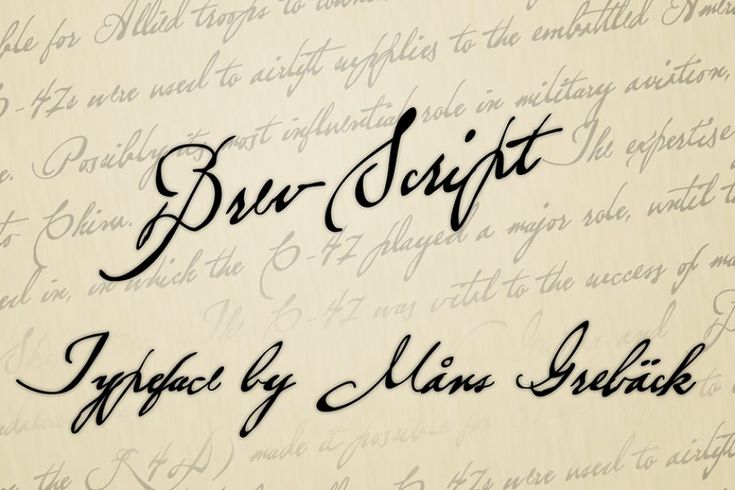 ble for Allied troops to
C-47s were used to airlift supplies to the embattled Ameri
e. Possibly its most influential role in military aviation,
Brev Script
The expertise
to China.
ed in, in which the C-47 played a major role, until t
The C-47 was vital to the success of ma
and
Typeface by Måns Grebäck
the R4D) made it possible for
C-47s were used to airlift